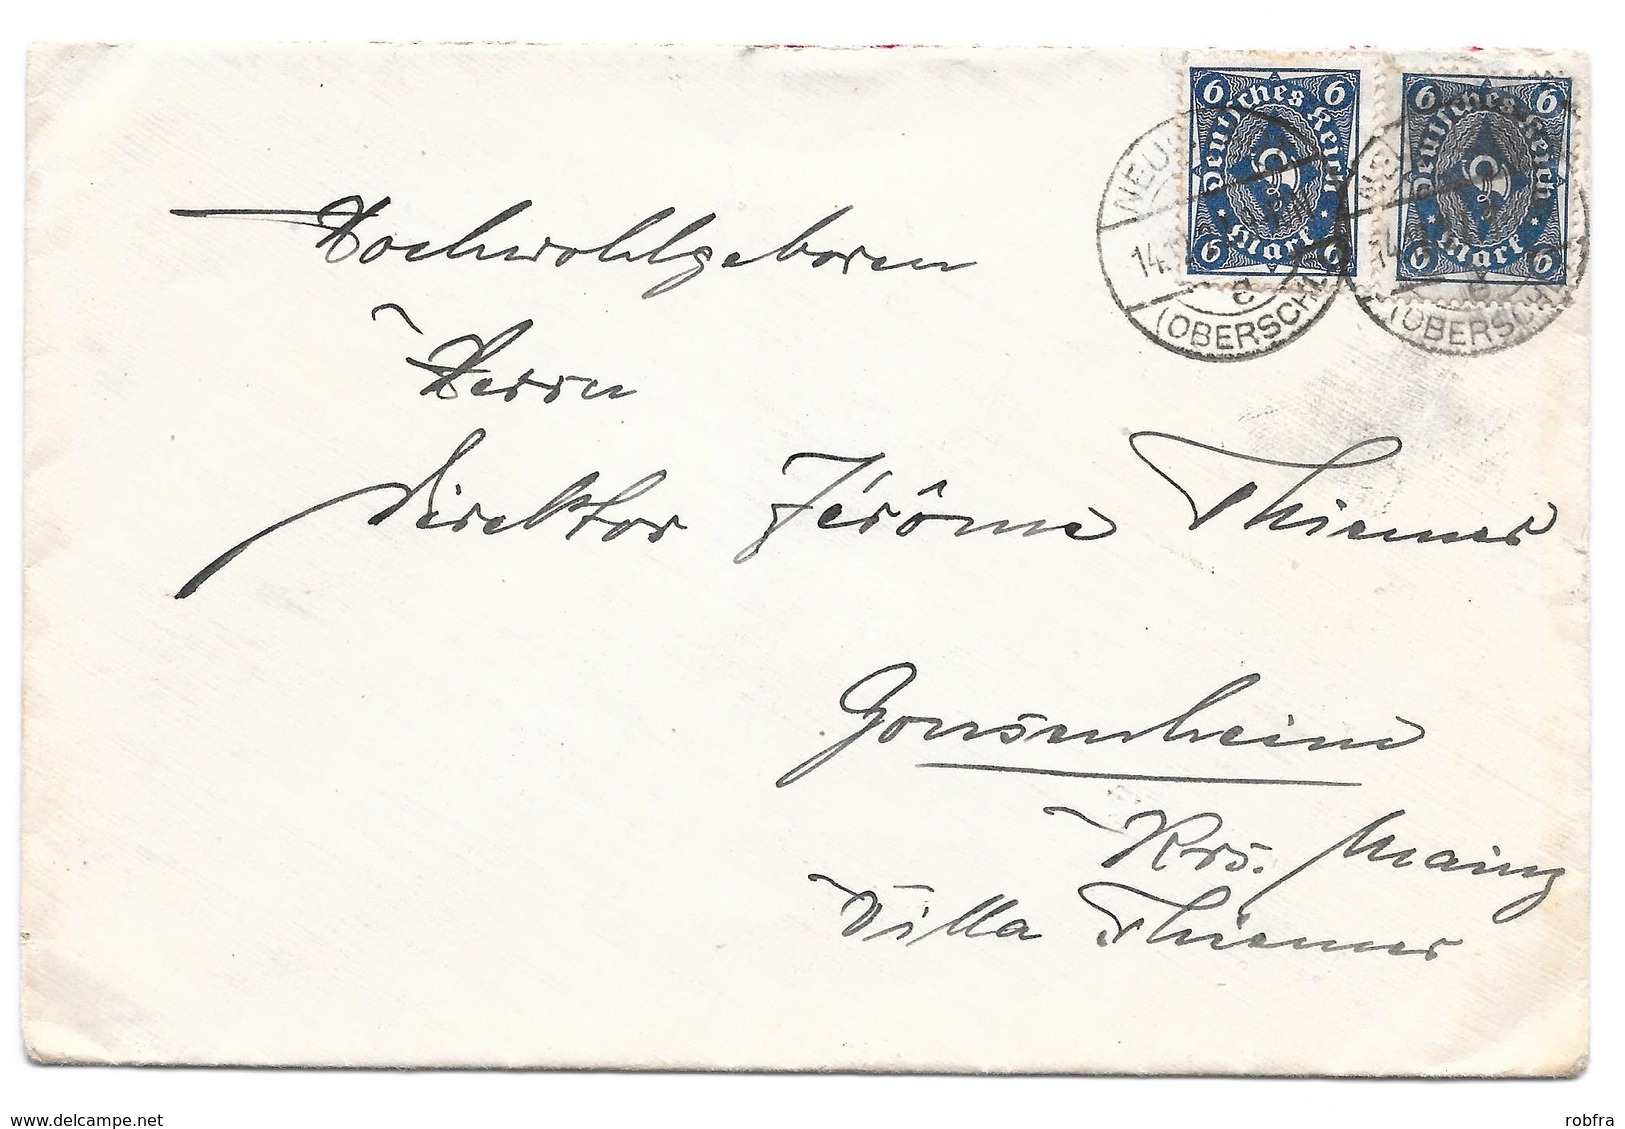 6 6 6 6
Deutsches Reich Deutsches Reich
Mark Mark
6 6 6 6
14. 14.
e e
(OBERSCHL (OBERSCHL
Hochwohlgeboren
Herrn
Direktor Jérôme Thiemer
Gonsenheim
Krs. Mainz
Villa Thiemer
delcampe.net
robfra